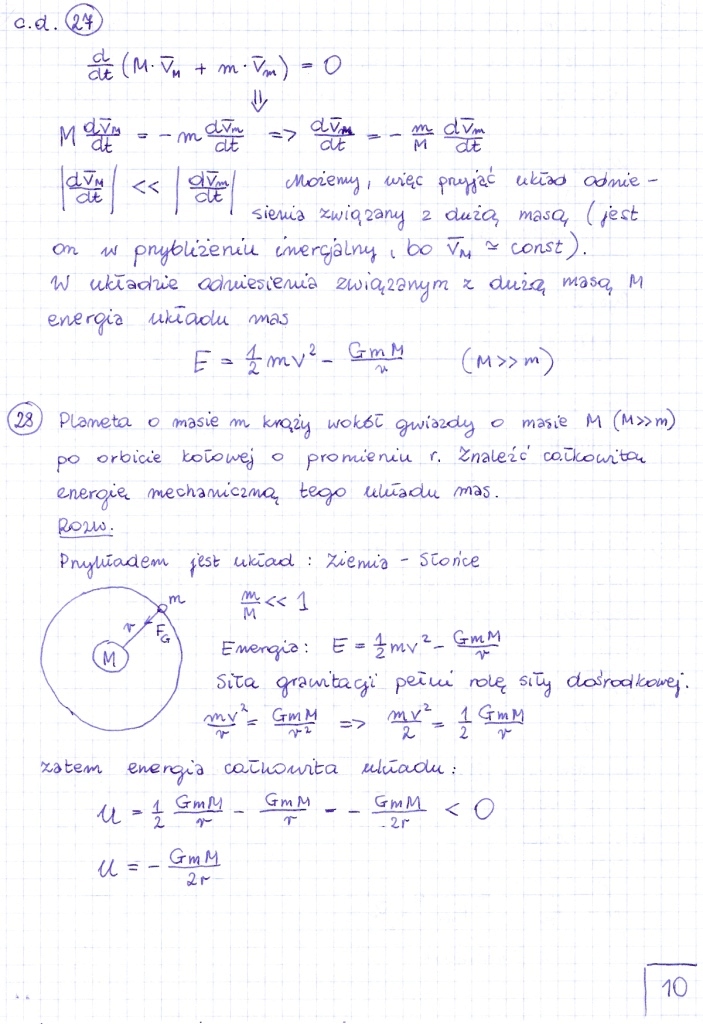 c.d. 27
d/dt (M·V̄_M + m·V̄_m) = 0
⇓
M dV̄_M/dt = - m dV̄_m/dt => dV̄_M/dt = - m/M dV̄_m/dt
|dV̄_M/dt| << |dV̄_m/dt| Możemy, więc przyjąć układ odnie-
sienia związany z dużą masą (jest
on w przybliżeniu inercjalny, bo V̄_M ≃ const).
W układzie odniesienia związanym z dużą masą M
energia układu mas
E = 1/2 mv² - GmM/r (M>>m)
28 Planeta o masie m krąży wokół gwiazdy o masie M (M>>m)
po orbicie kołowej o promieniu r. Znaleźć całkowitą
energię mechaniczną tego układu mas.
Rozw.
Przykładem jest układ : Ziemia - Słońce
m
r
F_G
M
m/M << 1
Energia: E = 1/2 mv² - GmM/r
Siła grawitacji pełni rolę siły dośrodkowej.
mv²/r = GmM/r² => mv²/2 = 1/2 GmM/r
zatem energia całkowita układu :
U = 1/2 GmM/r - GmM/r = - GmM/2r < 0
U = - GmM/2r
10